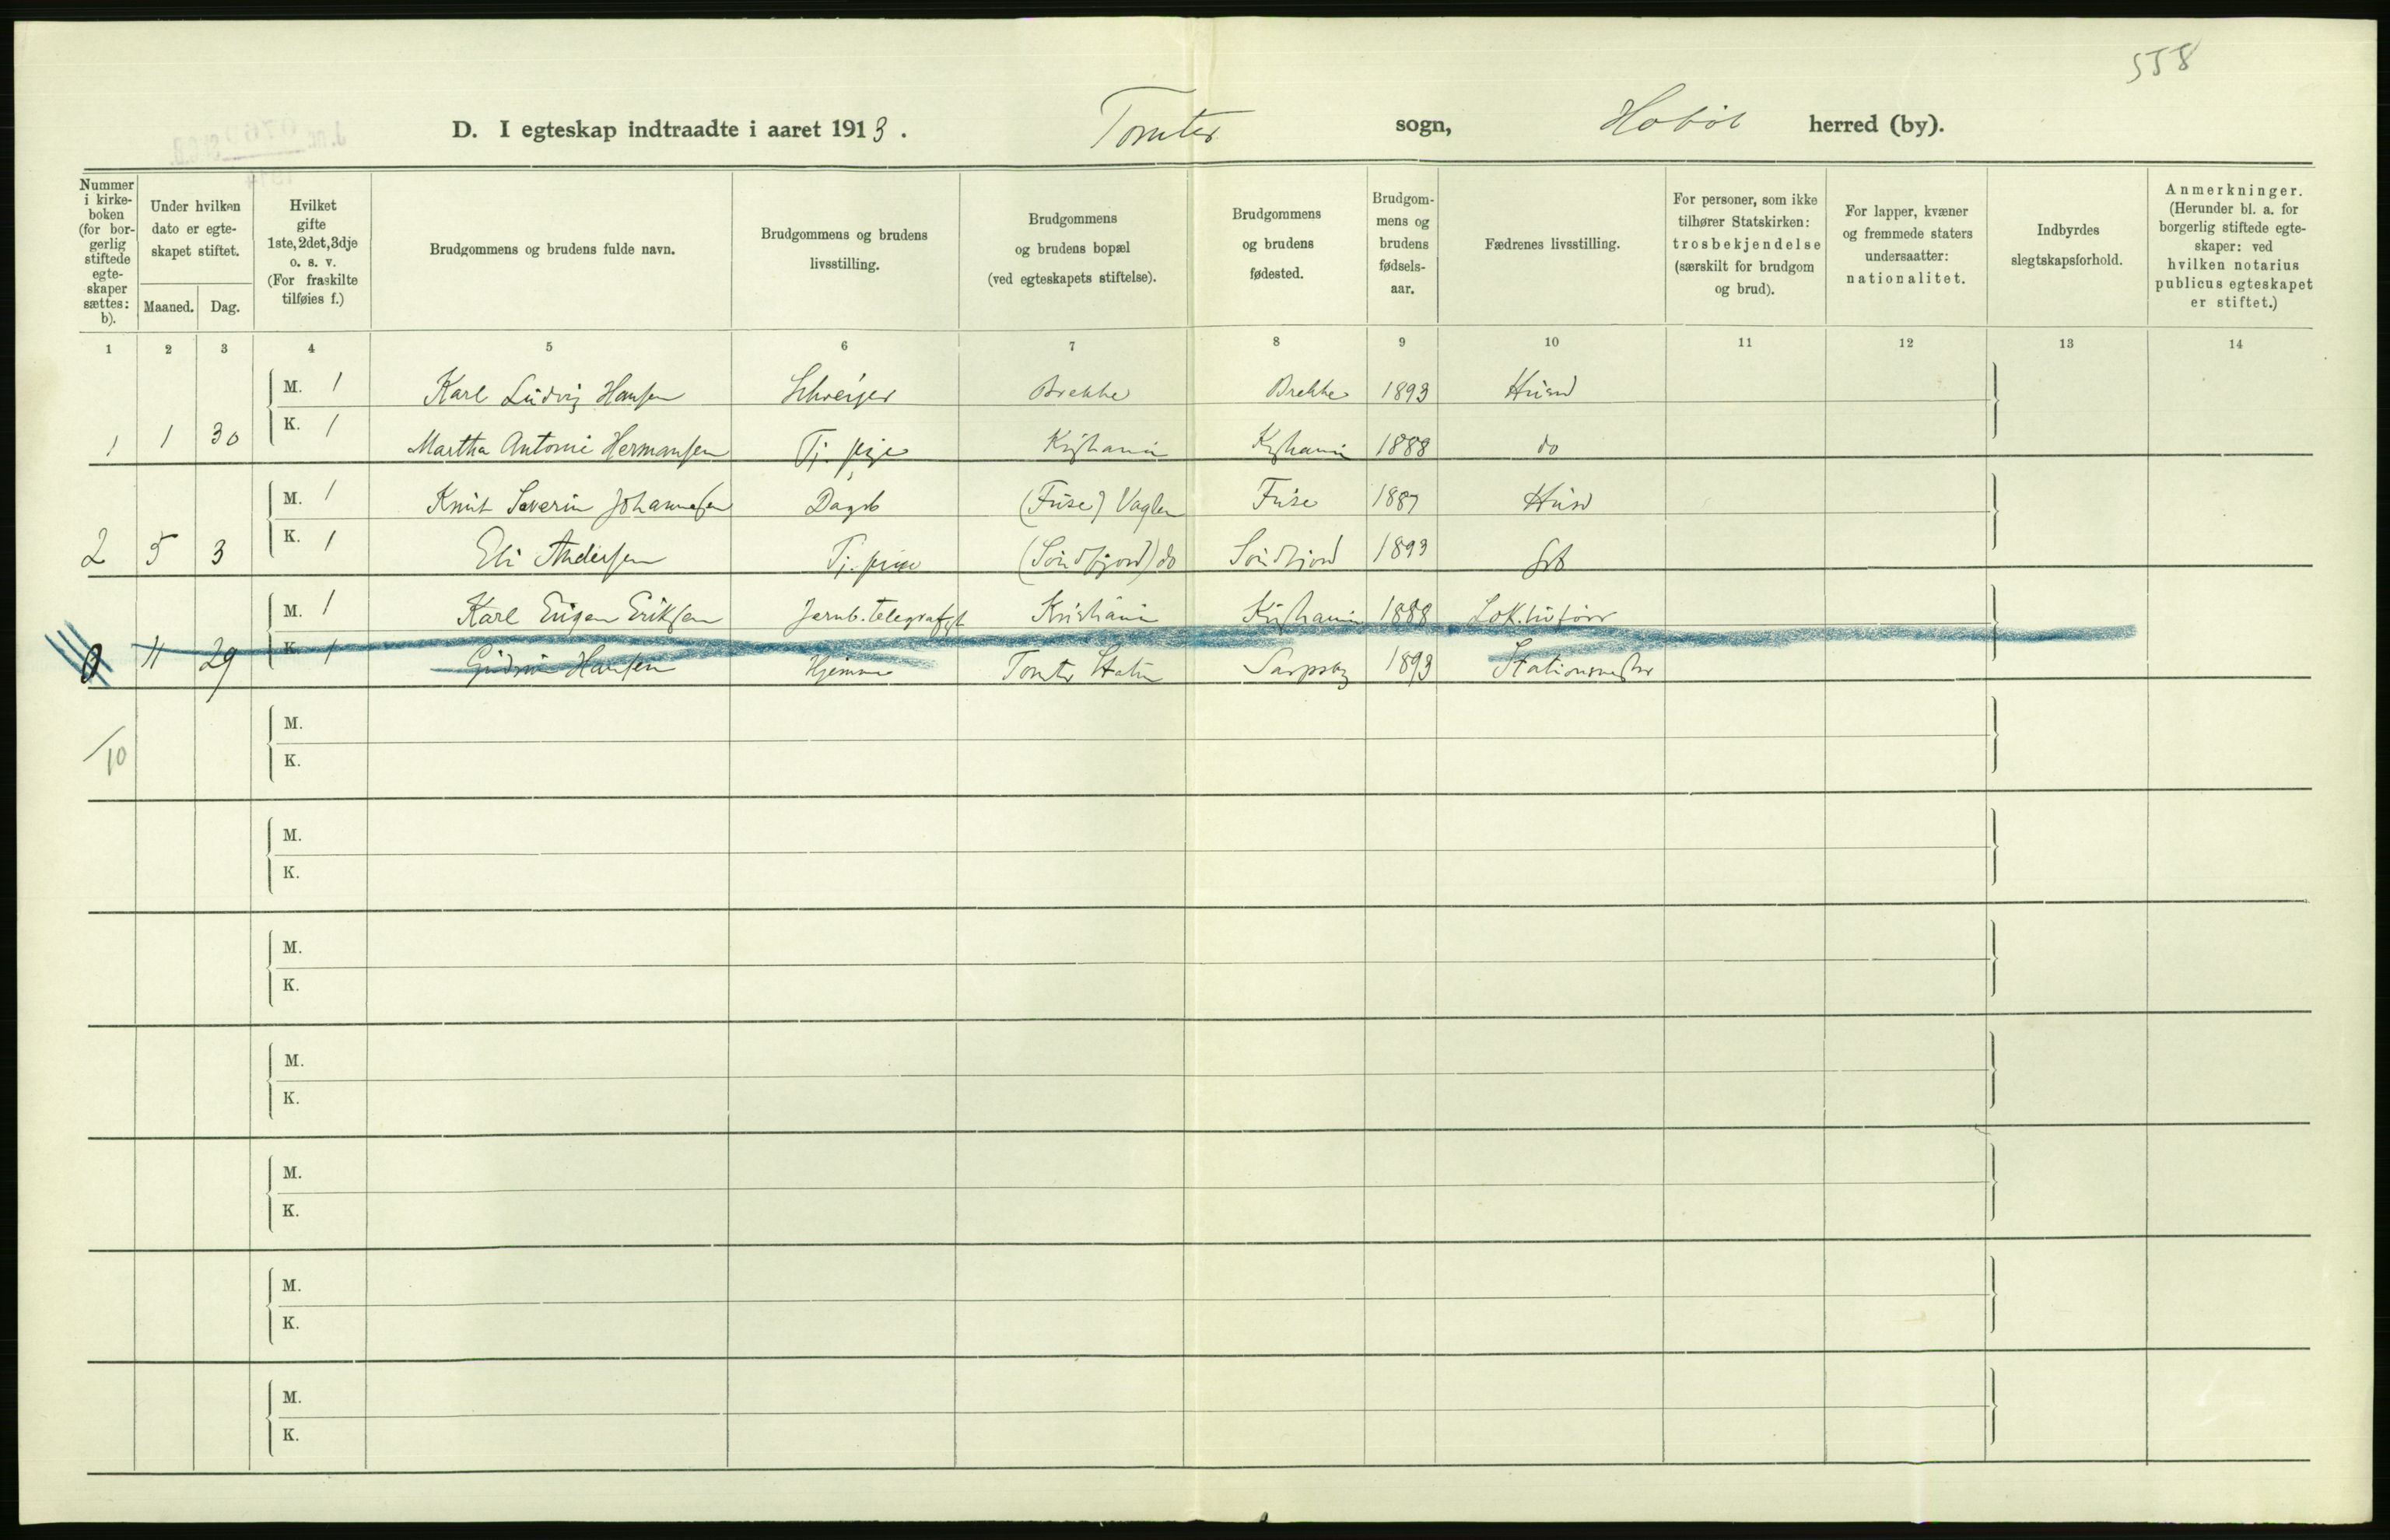 558
D. I egteskap indtraadte i aaret 1913. Tomter sogn, Hobøl herred (by).
Nummer i kirkeboken (for borgerlig stiftede egteskaper sættes: b).
Under hvilken dato er egteskapet stiftet.
Maaned. Dag.
Hvilket gifte 1ste, 2det, 3dje o. s. v. (For fraskilte tilføies f.)
Brudgommens og brudens fulde navn.
Brudgommens og brudens livsstilling.
Brudgommens og brudens bopæl (ved egteskapets stiftelse).
Brudgommens og brudens fødested.
Brudgommens og brudens fødselsaar.
Fædrenes livsstilling.
For personer, som ikke tilhører Statskirken: trosbekjendelse (særskilt for brudgom og brud).
For lapper, kvæner og fremmede staters undersaatter: nationalitet.
Indbyrdes slegtskapsforhold.
Anmerkninger. (Herunder bl. a. for borgerlig stiftede egteskaper: ved hvilken notarius publicus egteskapet er stiftet.)
1 2 3 4 5 6 7 8 9 10 11 12 13 14
M. 1 Karl Ludvig Hansen Schveiser Brekke Brekke 1893 Husm
1 1 30 K. 1 Martha Antonie Hermansen Tj. pige Kristiania Kristiania 1888 do
M. 1 Knut Severin Johannesen Dagb (Fuse) Vaglen Fuse 1887 Husm
2 5 3 K. 1 Eli Andersen Tj. pige (Söndfjord) do Söndfjord 1893
M. 1 Karl Eugen Eriksen Jernb. telegrafist Kristiania Kristiania 1888
11 29 K. 1 Gudrun Hansen Hjemme Tomter Station Sarpsbg 1893 Stationsmester
/10
M.
K.
M.
K.
M.
K.
M.
K.
M.
K.
M.
K.
M.
K.